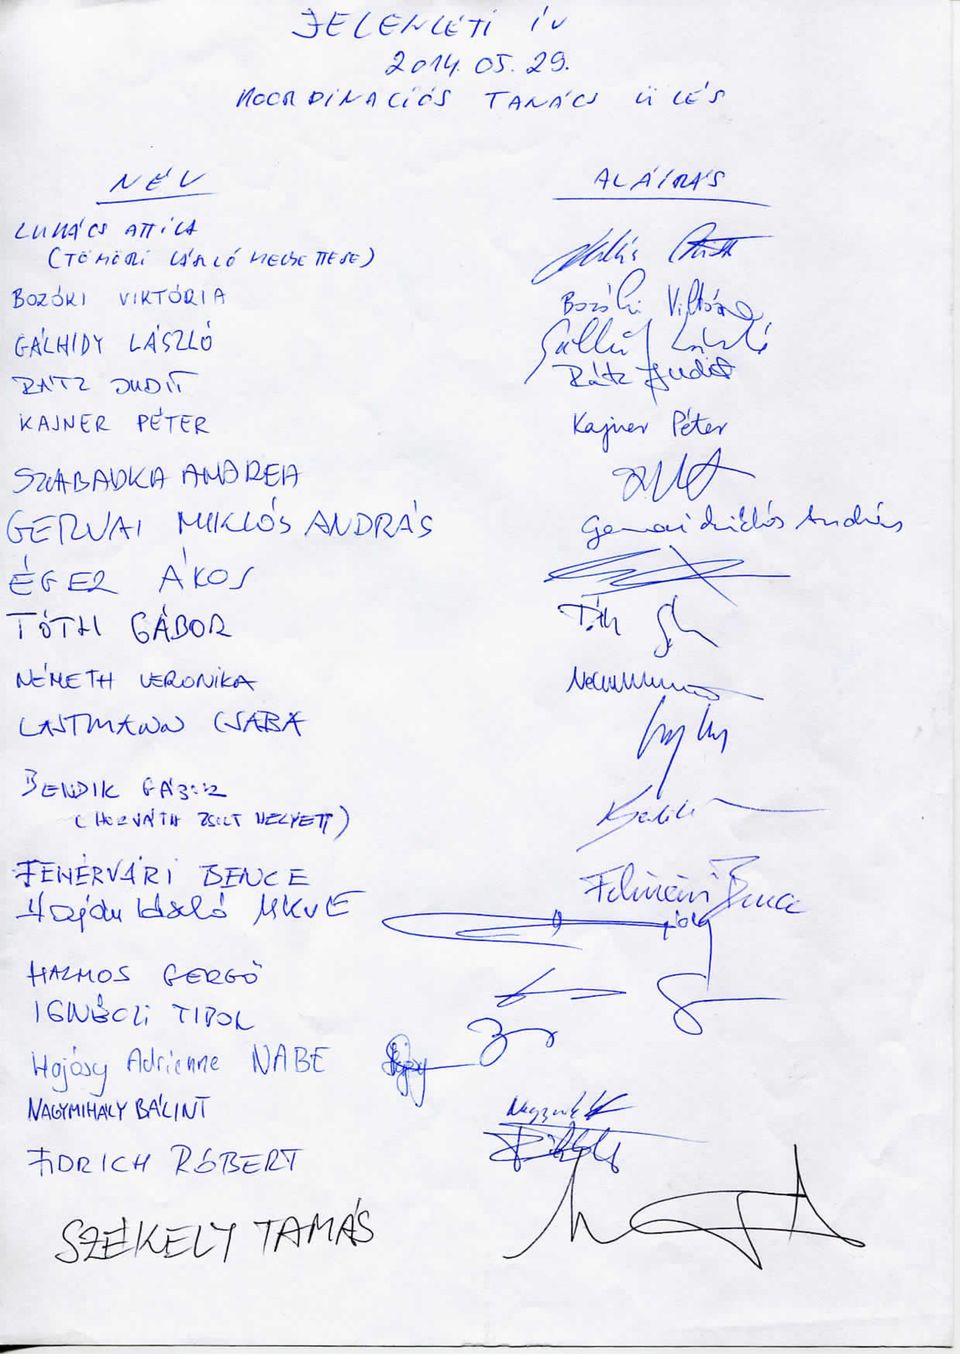 JELENLÉTI ÍV
2014. 05. 29.
KOORDINÁCIÓS TANÁCS ÜLÉS
NÉV ALÁÍRÁS
LUKÁCS ATTILA
(TÖMÖRI LÁSZLÓ HELYETTESE)
BOZÓKI VIKTÓRIA Bozóki Viktória
GÁLHIDY LÁSZLÓ Gálhidy László
RÁTZ JUDIT Rátz Judit
KAJNER PÉTER Kajner Péter
SZABADKA ANDREA
GERVAI MIKLÓS ANDRÁS Gervai Miklós András
ÉGER ÁKOS
TÓTH GÁBOR Tóth
NÉMETH VERONIKA
LAJTMANN CSABA
BENDIK GÁBOR
(HORVÁTH ZSOLT HELYETT)
FEHÉRVÁRI BENCE Fehérvári Bence
Hajdu László MKVE
HALMOS GERGŐ
IGNÁCZI TIBOR
Hojásy Adrienne NABE
NAGYMIHÁLY BÁLINT
FIDRICH RÓBERT
SZÉKELY TAMÁS